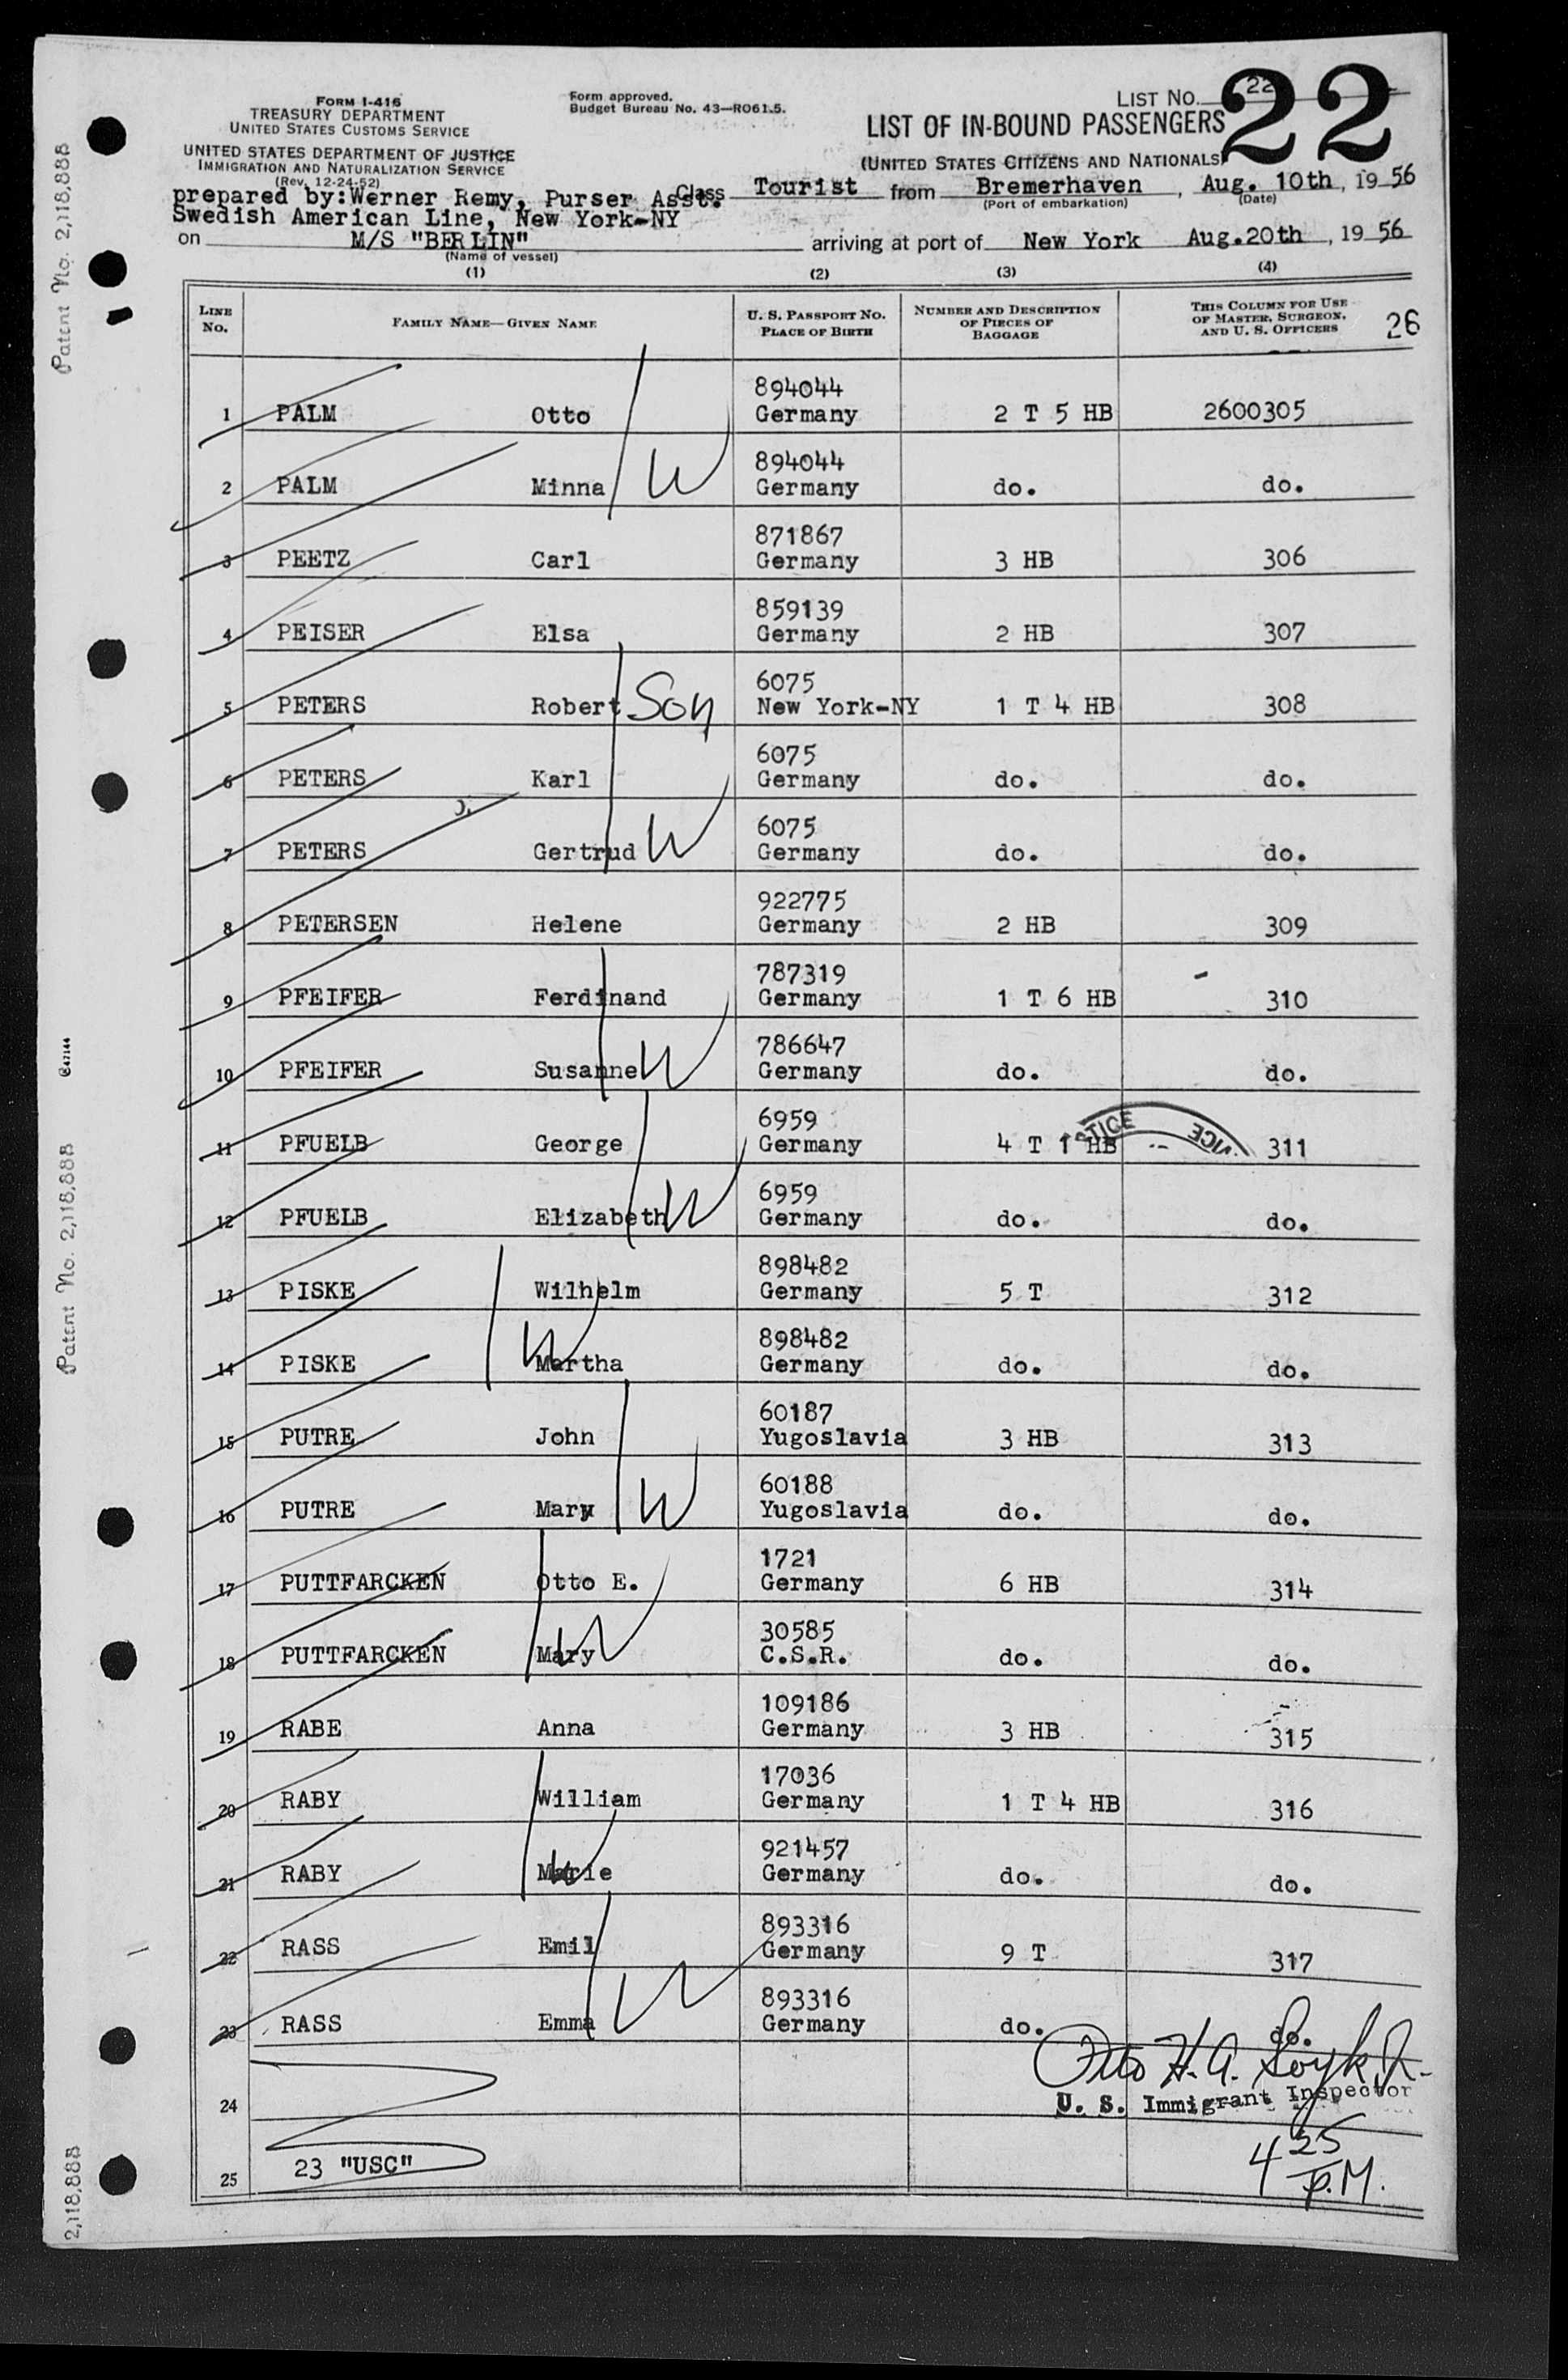 FORM I-416
TREASURY DEPARTMENT
UNITED STATES CUSTOMS SERVICE
UNITED STATES DEPARTMENT OF JUSTICE
IMMIGRATION AND NATURALIZATION SERVICE
(Rev. 12-24-52)
Form approved.
Budget Bureau No. 43—R061.5.
LIST NO. 22
22
LIST OF IN-BOUND PASSENGERS
(UNITED STATES CITIZENS AND NATIONALS)
prepared by:Werner Remy, Purser Asst.
Swedish American Line, New York-NY
Class Tourist from Bremerhaven, Aug. 10th, 1956
(Port of embarkation) (Date)
on M/S "BERLIN" arriving at port of New York Aug.20th, 1956
(Name of vessel)
(1) (2) (3) (4)
LINE NO. FAMILY NAME—GIVEN NAME U. S. PASSPORT NO. PLACE OF BIRTH NUMBER AND DESCRIPTION OF PIECES OF BAGGAGE THIS COLUMN FOR USE OF MASTER, SURGEON, AND U. S. OFFICERS 26
894044
1 PALM Otto Germany 2 T 5 HB 2600305
894044
2 PALM Minna W Germany do. do.
871867
3 PEETZ Carl Germany 3 HB 306
859139
4 PEISER Elsa Germany 2 HB 307
6075
5 PETERS Robert Son New York-NY 1 T 4 HB 308
6075
6 PETERS Karl Germany do. do.
6075
7 PETERS Gertrud W Germany do. do.
922775
8 PETERSEN Helene Germany 2 HB 309
787319
9 PFEIFER Ferdinand Germany 1 T 6 HB 310
786647
10 PFEIFER Susanne W Germany do. do.
6959
11 PFUELB George Germany 4 T 1 HB 311
6959
12 PFUELB Elizabeth W Germany do. do.
898482
13 PISKE Wilhelm Germany 5 T 312
898482
14 PISKE W Martha Germany do. do.
60187
15 PUTRE John Yugoslavia 3 HB 313
60188
16 PUTRE Mary W Yugoslavia do. do.
1721
17 PUTTFARCKEN Otto E. Germany 6 HB 314
30585
18 PUTTFARCKEN Mary W C.S.R. do. do.
109186
19 RABE Anna Germany 3 HB 315
17036
20 RABY William Germany 1 T 4 HB 316
921457
21 RABY Marie W Germany do. do.
893316
22 RASS Emil Germany 9 T 317
893316
23 RASS Emma W Germany do. do.
Otto H. A.
U. S. Immigrant Inspector
24
25 23 "USC" 4 25 P.M.
Patent No. 2,118,888
Patent No. 2,118,888
2,118,888